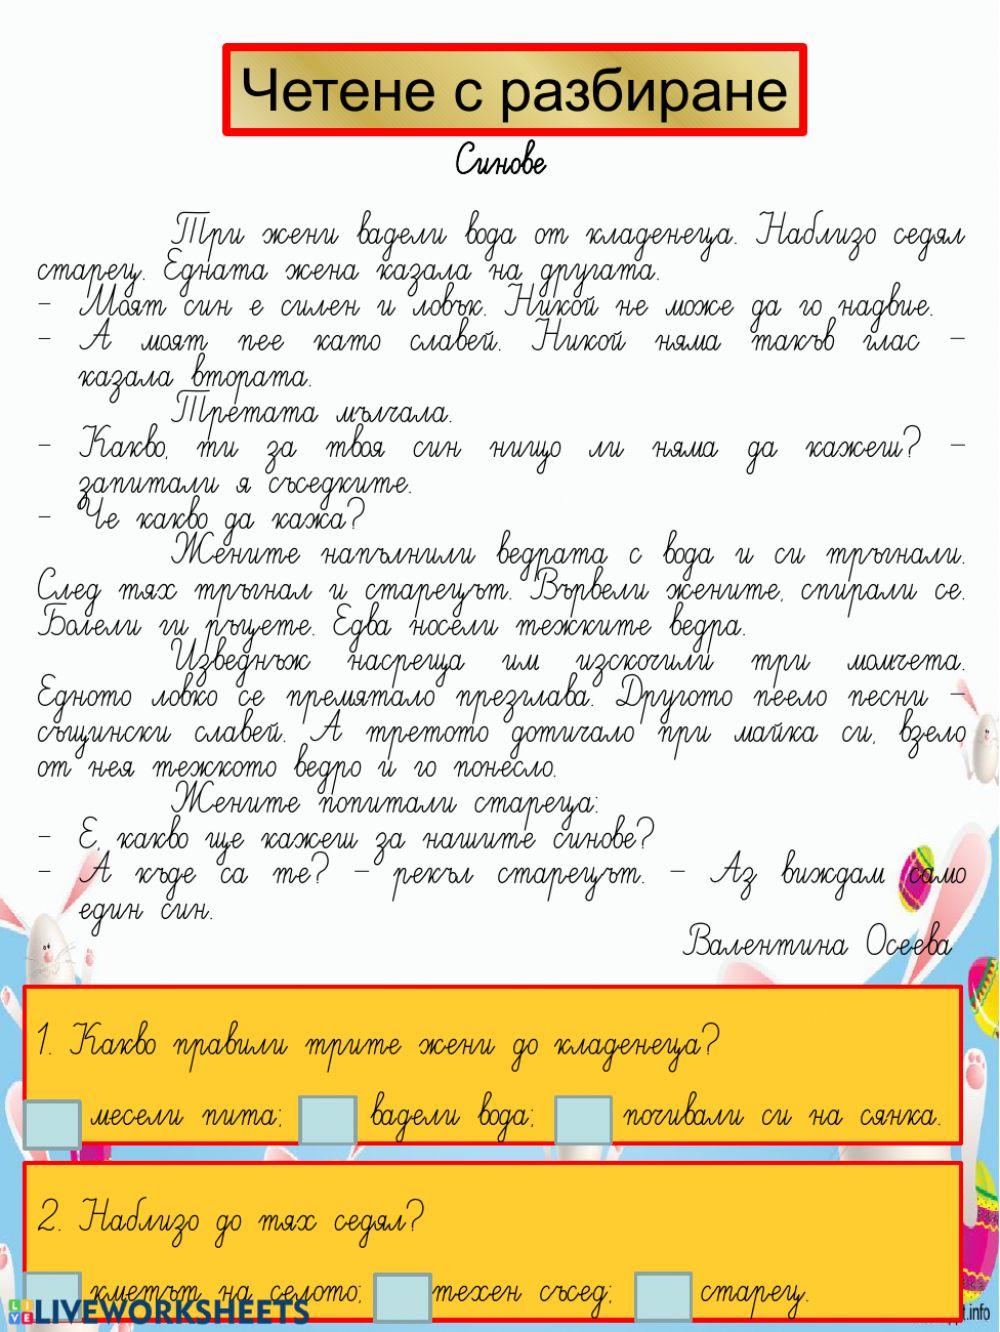 Четене с разбиране
Синове
Три жени вадели вода от кладенеца. Наблизо седял
старец. Едната жена казала на другата.
- Моят син е силен и ловък. Никой не може да го надвие.
- А моят пее като славей. Никой няма такъв глас -
казала втората.
Третата мълчала.
- Какво, ти за твоя син нищо ли няма да кажеш? -
запитали я съседките.
- Че какво да кажа?
Жените напълнили ведрата с вода и си тръгнали.
След тях тръгнал и старецът. Вървели жените, спирали се.
Болели ги ръцете. Едва носели тежките ведра.
Изведнъж насреща им изскочили три момчета.
Едното ловко се премятало презглава. Другото пеело песни -
същински славей. А третото дотичало при майка си, взело
от нея тежкото ведро и го понесло.
Жените попитали стареца:
- Е, какво ще кажеш за нашите синове?
- А къде са те? - рекъл старецът. - Аз виждам само
един син.
Валентина Осеева
1. Какво правили трите жени до кладенеца?
месели пита; вадели вода; почивали си на сянка.
2. Наблизо до тях седял?
кметът на селото; техен съсед; старец.
LIVEWORKSHEETS